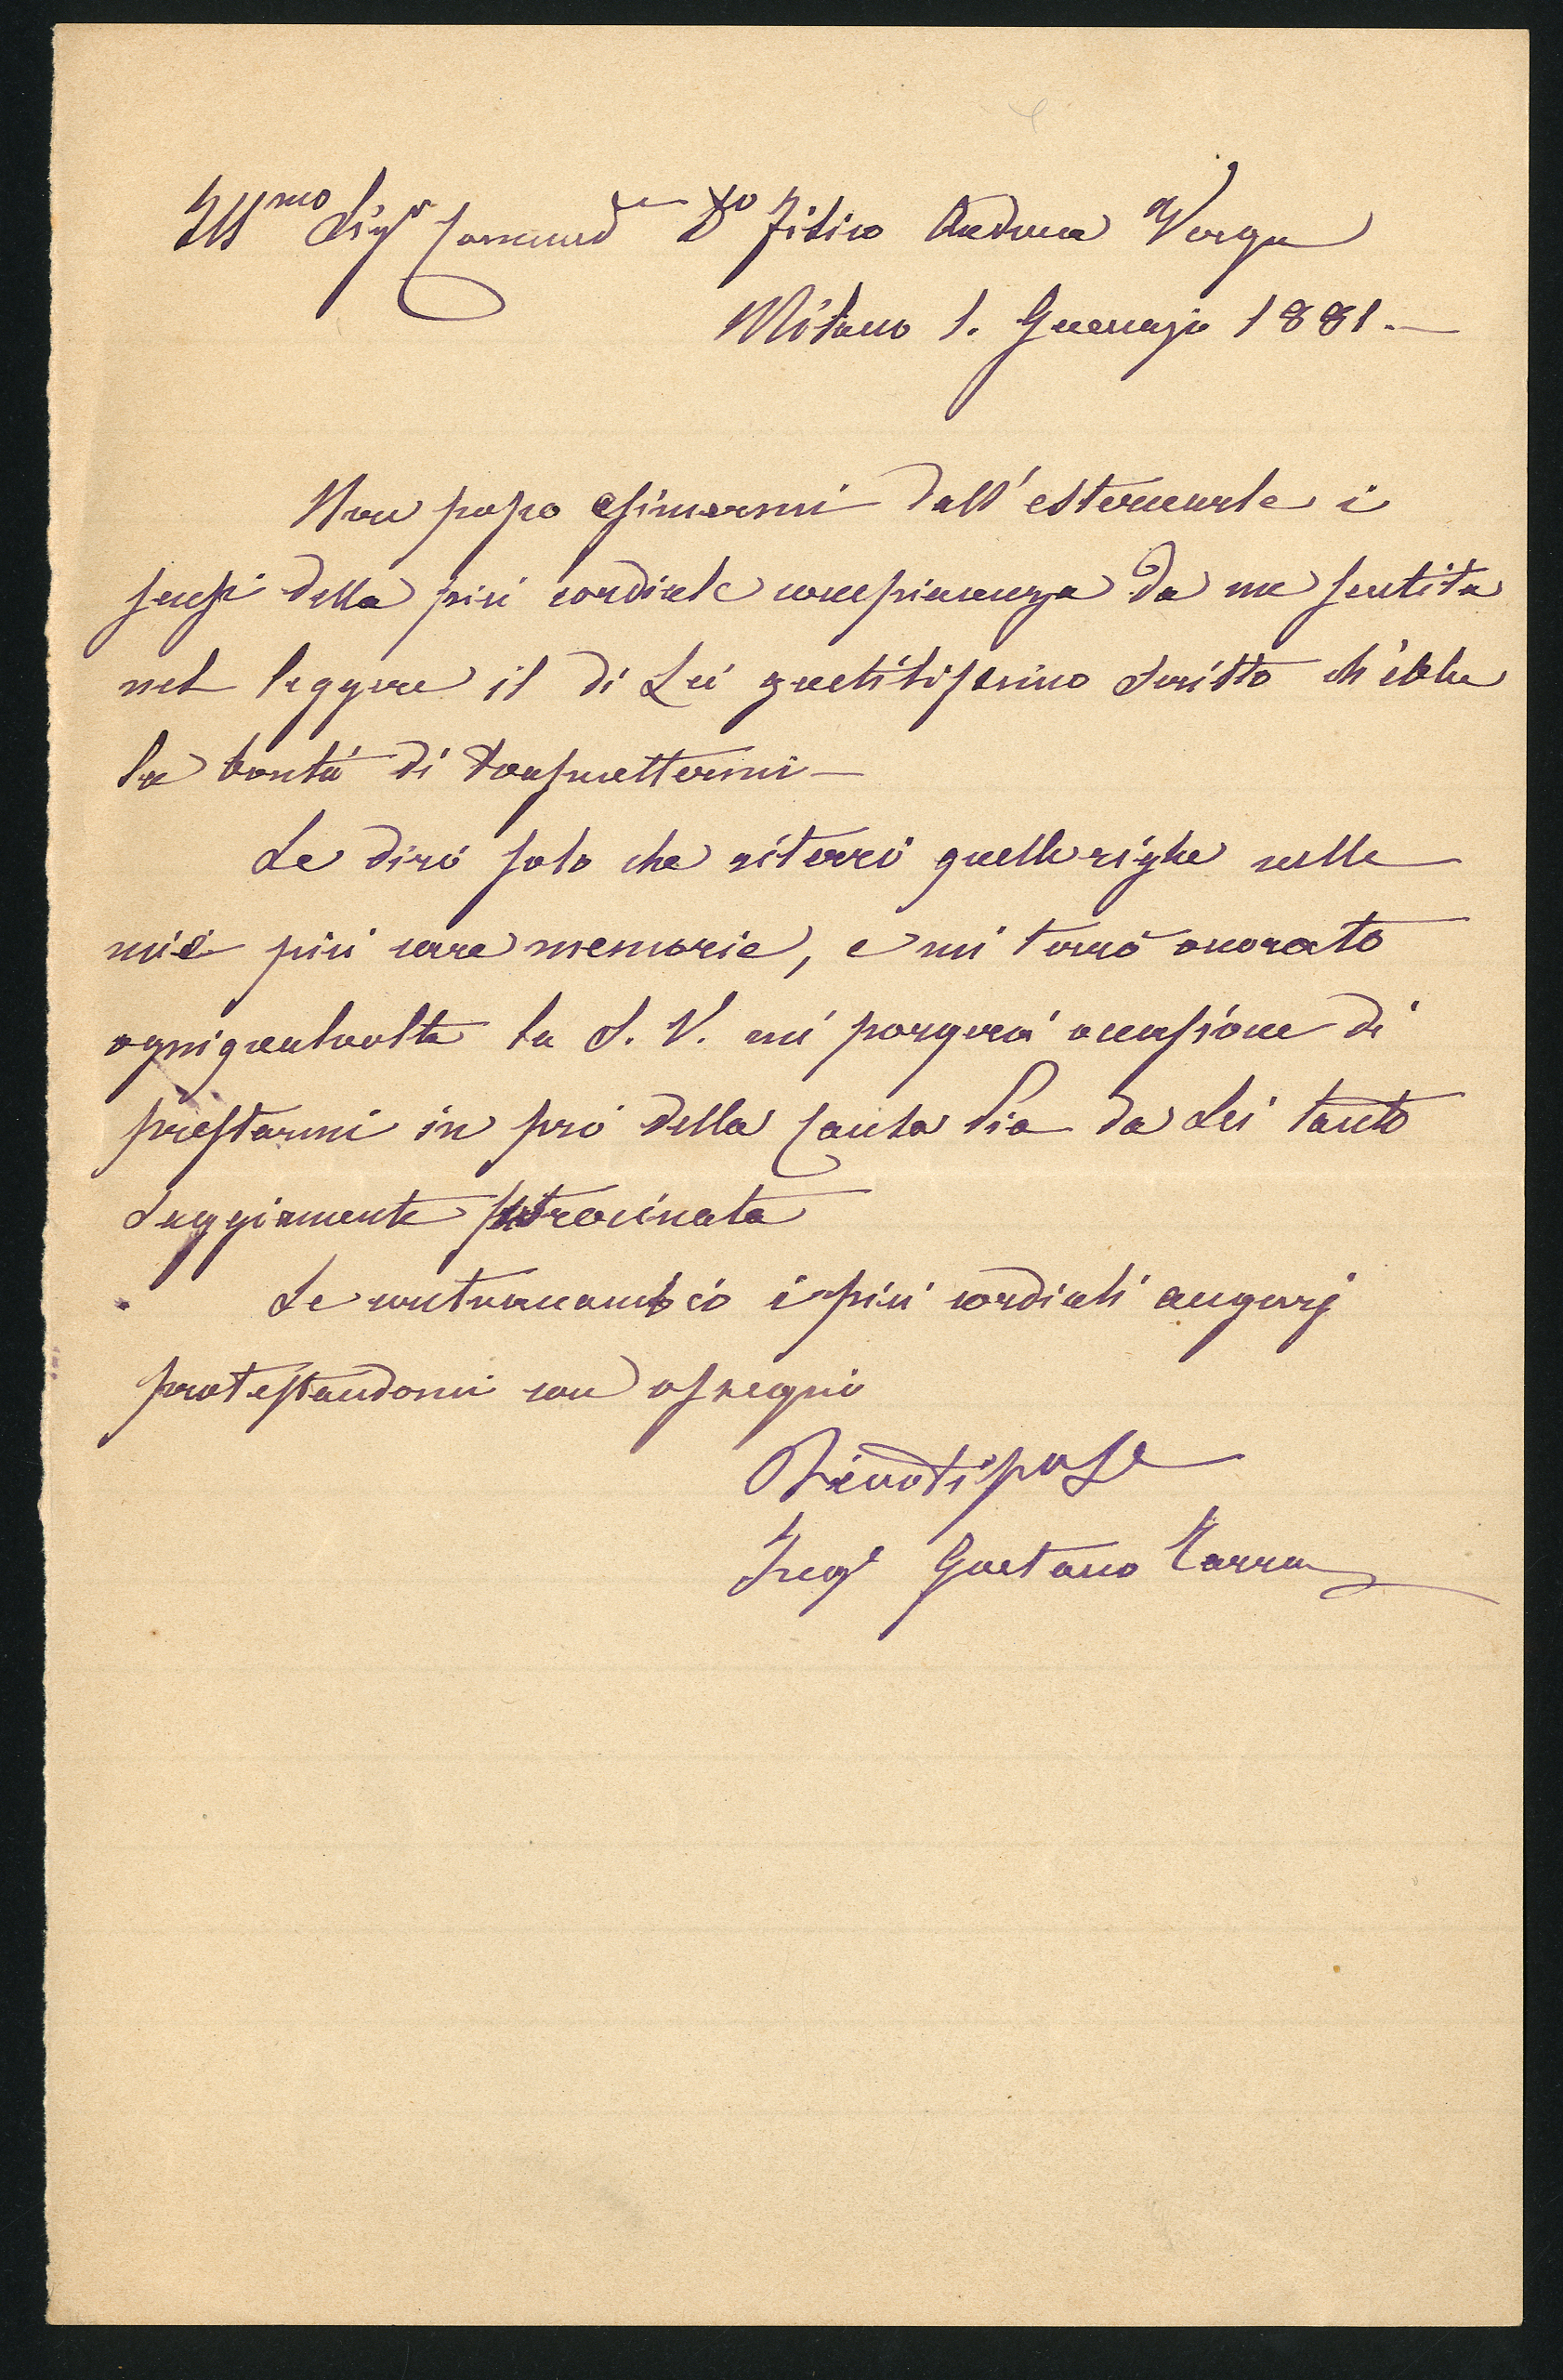 Ill.mo Sig.r Comend.e D.o Fisico Andrea Verga
Milano 1. Gennajo 1881.—
Non posso esimermi dall'esternarle i
sensi della più cordiale compiacenza da me sentita
nel leggere il di Lei gentilissimo scritto ch'ebbe
la bontà di trasmettermi—
Le dirò solo che riterrò quelle righe nelle
mie più care memorie, e mi terrò onorato
ogniqualvolta la S. V. mi porgerà occasione di
prestarmi in prò della Causa Pia da Lei tanto
saggiamente patrocinata
Le contraccambio i più cordiali augurj
protestandomi con ossequio
Ing.e Gaetano Tarra